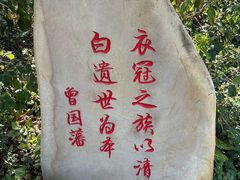 衣冠之族以清
白遗世为本
曾国藩